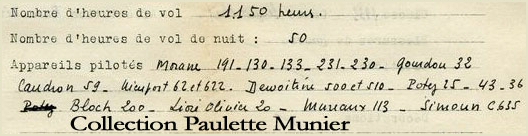 Nombre d'heures de vol 1.150 heures.
Nombre d'heures de vol de nuit : 50
Appareils pilotés Morane 191 - 130 - 133 - 231 - 230 - Gourdou 32
Caudron 59 - Nieuport 62 et 622. Dewoitine 500 et 510 - Potez 25 - 43 - 36
Potez Bloch 200 - Lioré Olivier 20 - Mureaux 113 - Simoun C635
Collection Paulette Munier